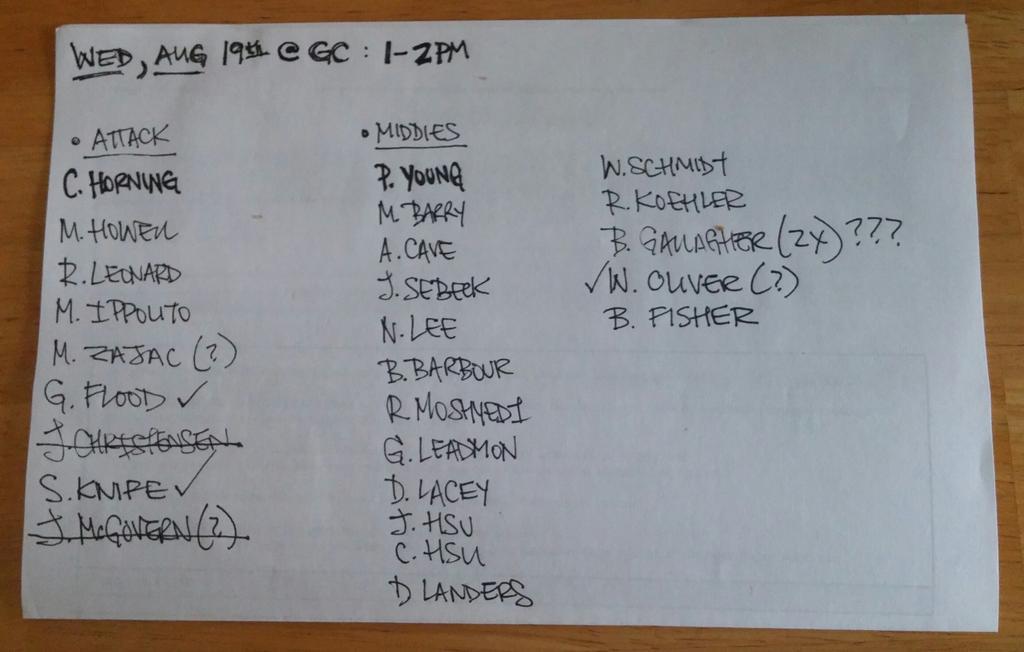 WED, AUG 19th @ GC : 1-2PM
• ATTACK
C. HORNING
M. HOWELL
R. LEONARD
M. IPPOLITO
M. ZAJAC (?)
G. FLOOD ✓
J. CHRISTENSEN
S. KNIPE ✓
J. McGOVERN (?)
• MIDDIES
P. YOUNG
M. BARRY
A. CAVE
J. SEBECK
N. LEE
B. BARBOUR
R. MOSHYEDI
G. LEADMON
D. LACEY
J. HSU
C. HSU
D LANDERS
W. SCHMIDT
R. KOEHLER
B. GALLAGHER (2X) ???
✓ W. OLIVER (?)
B. FISHER